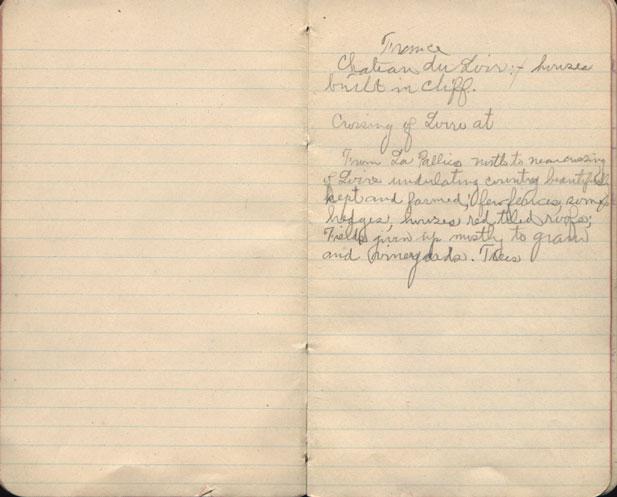 France
Chateau du Loir: + houses
built in cliff.
Crossing of Loire at
From La Pallice north to near crossing
of Loire undulating country beautifully
kept and farmed; few fences, some
hedges; houses red tiled roofs;
Fields given up mostly to grain
and vineyards. Trees